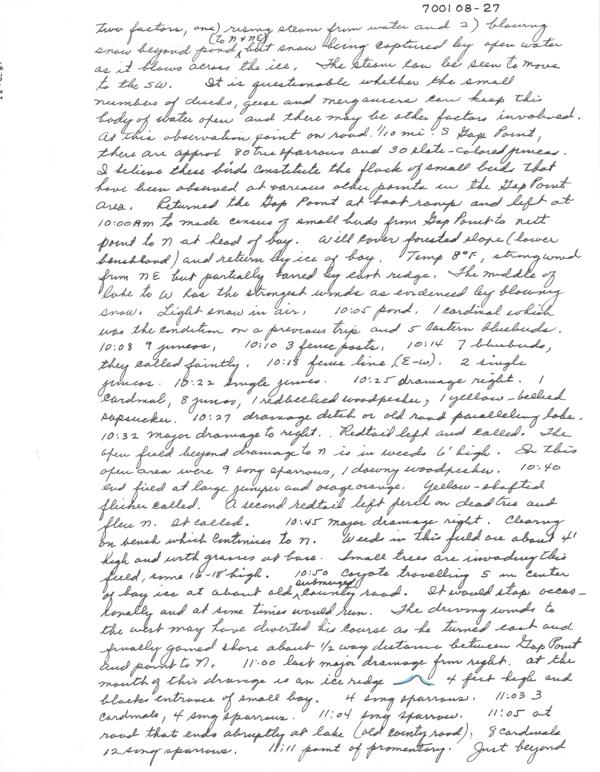 700108-27
two factors, one) rising steam from water and 2) blowing
(to N & NE)
snow beyond pond, but snow being captured by open water
as it blows across the ice. The steam can be seen to move
to the SW. It is questionable whether the small
numbers of ducks, geese and mergansers can keep this
body of water open and there may be other factors involved.
At this observation point on road 4/10 mi S Gap Point,
there are approx 80 tree sparrows and 30 slate-colored juncos.
I believe these birds constitute the flock of small birds that
have been observed at various other points in the Gap Point
area. Returned the Gap Point at boat ramp and left at
10:00 AM to made census of small birds from Gap Point to next
point to N at head of bay. Will cover forested slope (lower
benchland) and return by ice of bay. Temp 8°F, strong wind
from NE but partially barred by east ridge. The middle of
lake to W has the strongest winds as evidenced by blowing
snow. Light snow in air. 10:05 pond. 1 cardinal which
was the condition on a previous trip and 5 Eastern bluebirds.
10:08 9 juncos, 10:10 3 fence posts. 10:14 7 bluebirds,
they called faintly. 10:18 fence line (E-W). 2 single
juncos. 10:22 single junco. 10:25 drainage right. 1
cardinal, 8 juncos, 1 redbellied woodpecker, 1 yellow-bellied
sapsucker. 10:27 drainage ditch or old road paralleling lake.
10:32 major drainage to right. Redtail left and called. The
open field beyond drainage to N is in weeds 6' high. In this
open area were 9 song sparrows, 1 downy woodpecker. 10:40
end field at large juniper and osage orange. Yellow-shafted
flicker called. A second redtail left perch on dead tree and
flew N. It called. 10:45 major drainage right. Clearing
on bench which continues to N. Weeds in this field are about 4'
high and with grasses at base. Small trees are invading this
field, some 16-18' high. 10:50 coyote travelling S in center
submerged
of bay ice at about old county road. It would stop occas-
ionally and at some times would run. The driving winds to
the west may have diverted his course as he turned east and
finally gained shore about 1/2 way distance between Gap Point
and point to N. 11:00 last major drainage from right. at the
mouth of this drainage is an ice ridge 4 feet high and
blocks entrance of small bay. 4 song sparrows. 11:03 3
cardinals, 4 song sparrows. 11:04 song sparrow. 11:05 at
road that ends abruptly at lake (old county road). 8 cardinals
12 song sparrows. 11:11 point of promontory. Just beyond